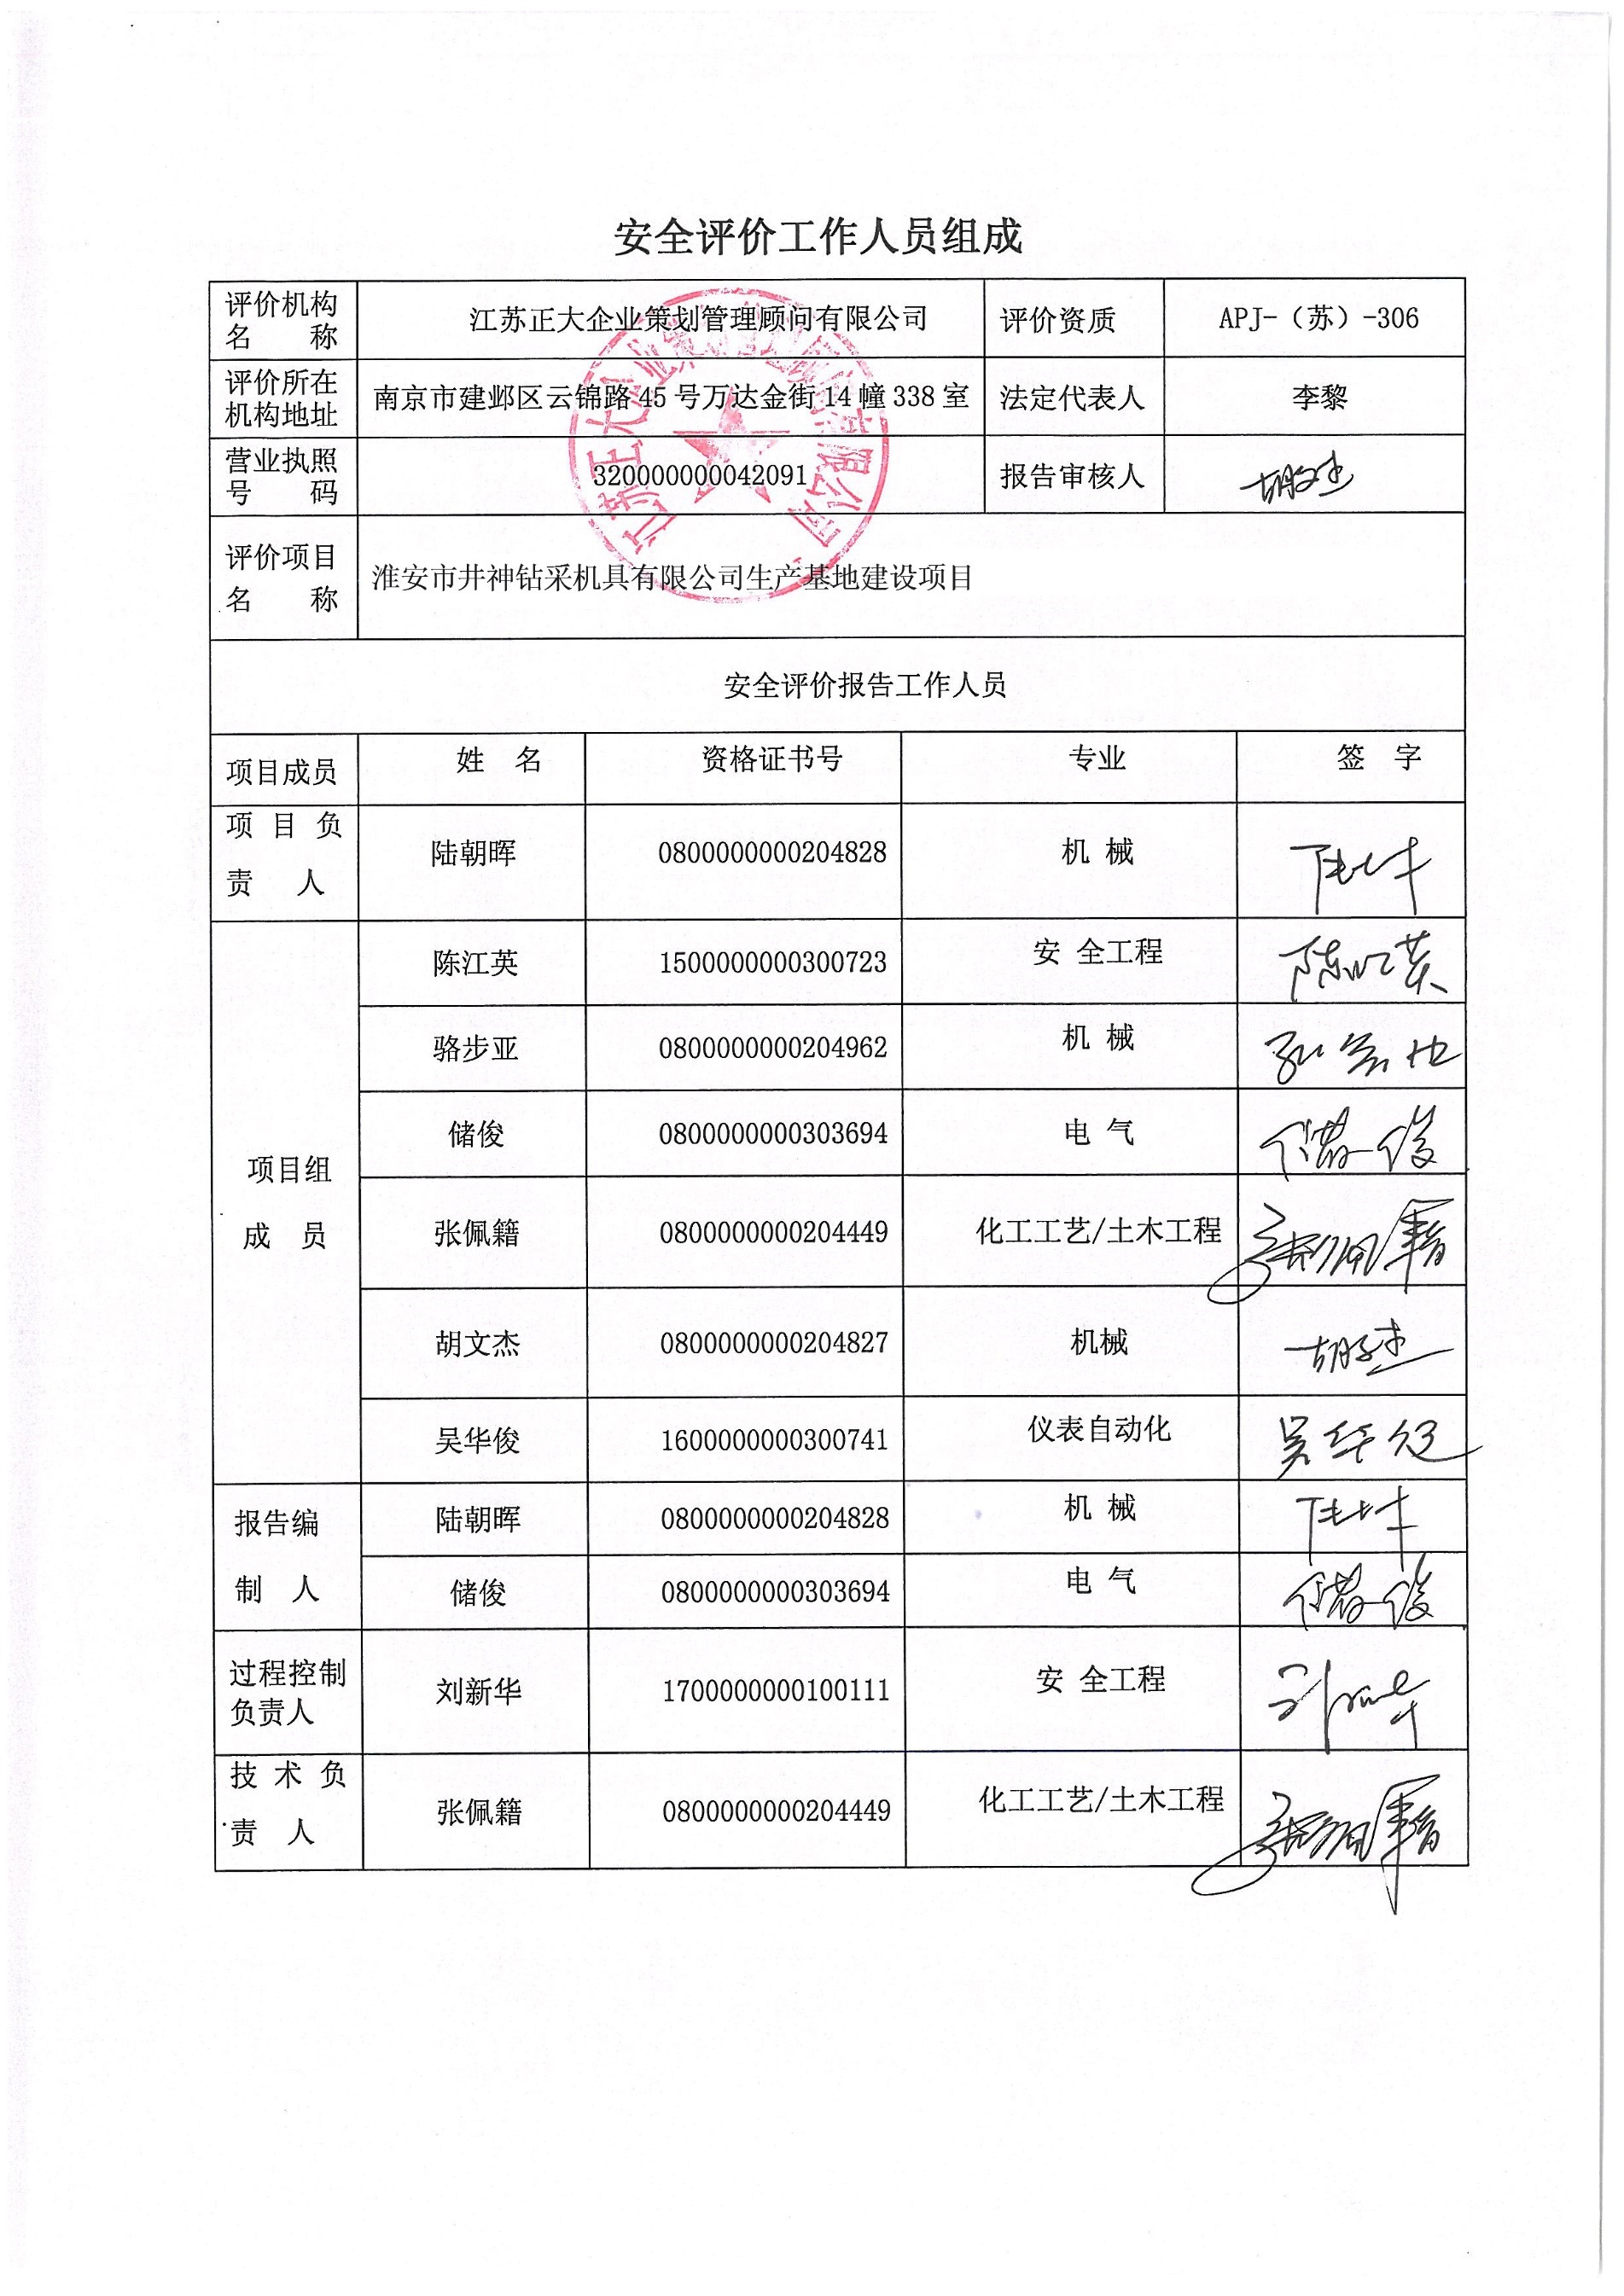 安全评价工作人员组成
评价机构 名 称 江苏正大企业策划管理顾问有限公司 评价资质 APJ-（苏）-306
评价所在 机构地址 南京市建邺区云锦路 45 号万达金街 14 幢 338 室 法定代表人 李黎
营业执照 号 码 320000000042091 报告审核人 胡文杰
江苏正大企业策划管理顾问有限公司
评价项目 名 称 淮安市井神钻采机具有限公司生产基地建设项目
安全评价报告工作人员
项目成员 姓 名 资格证书号 专业 签 字
项 目 负 责 人 陆朝晖 0800000000204828 机 械
项目组 成 员
陈江英 1500000000300723 安 全工程 陈江英
骆步亚 0800000000204962 机 械
储俊 0800000000303694 电 气 储俊
张佩籍 0800000000204449 化工工艺/土木工程 张佩籍
胡文杰 0800000000204827 机械 胡文杰
吴华俊 1600000000300741 仪表自动化 吴华俊
报告编 制 人
陆朝晖 0800000000204828 机 械
储俊 0800000000303694 电 气 储俊
过程控制 负责人 刘新华 1700000000100111 安 全工程 刘新华
技 术 负 责 人 张佩籍 0800000000204449 化工工艺/土木工程 张佩籍